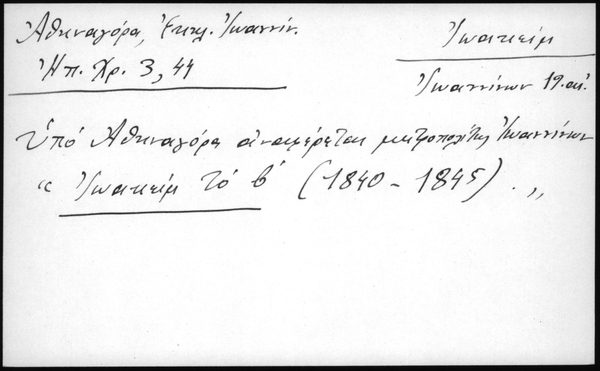 Ἀθηναγόρα, Ἐκκλ. Ἰωαννίν.
Ἠπ. Χρ. 3, 44
Ἰωακείμ
Ἰωαννίνων 19. αἰ.
Ὑπό Ἀθηναγόρα ἀναφέρεται μητροπολίτης Ἰωαννίνων
“ Ἰωακείμ τό β΄ (1840 - 1845) . „